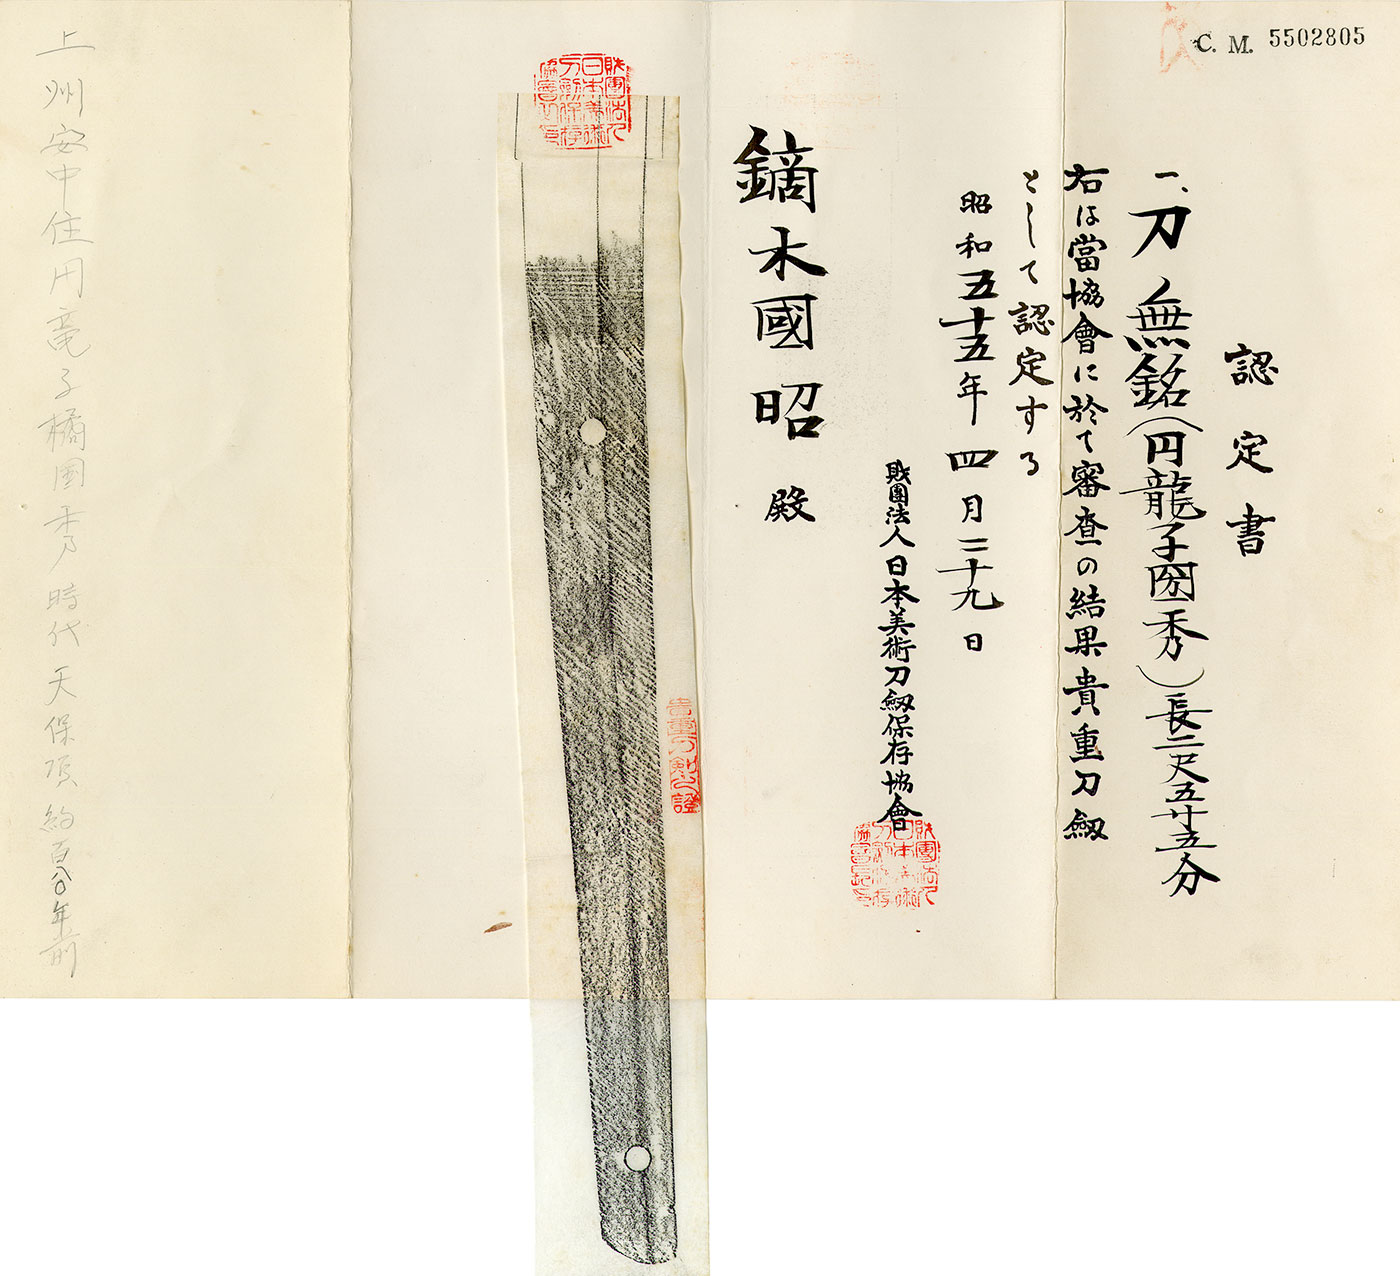 C. M. 5502805
認定書
一、刀 無銘(円龍子國秀)長二尺五寸五分
右は當協會に於て審査の結果貴重刀劔
として認定する
昭和五十五年四月二十九日
財團法人日本美術刀劔保存協會
財團法人
日本美術
刀劍保存
協會長印
鏑木國昭殿
財團法人
日本美術
刀劍保存
協會長印
貴重刀劍之證
上州安中住円竜子橘国秀時代天保頃約百八〇年前